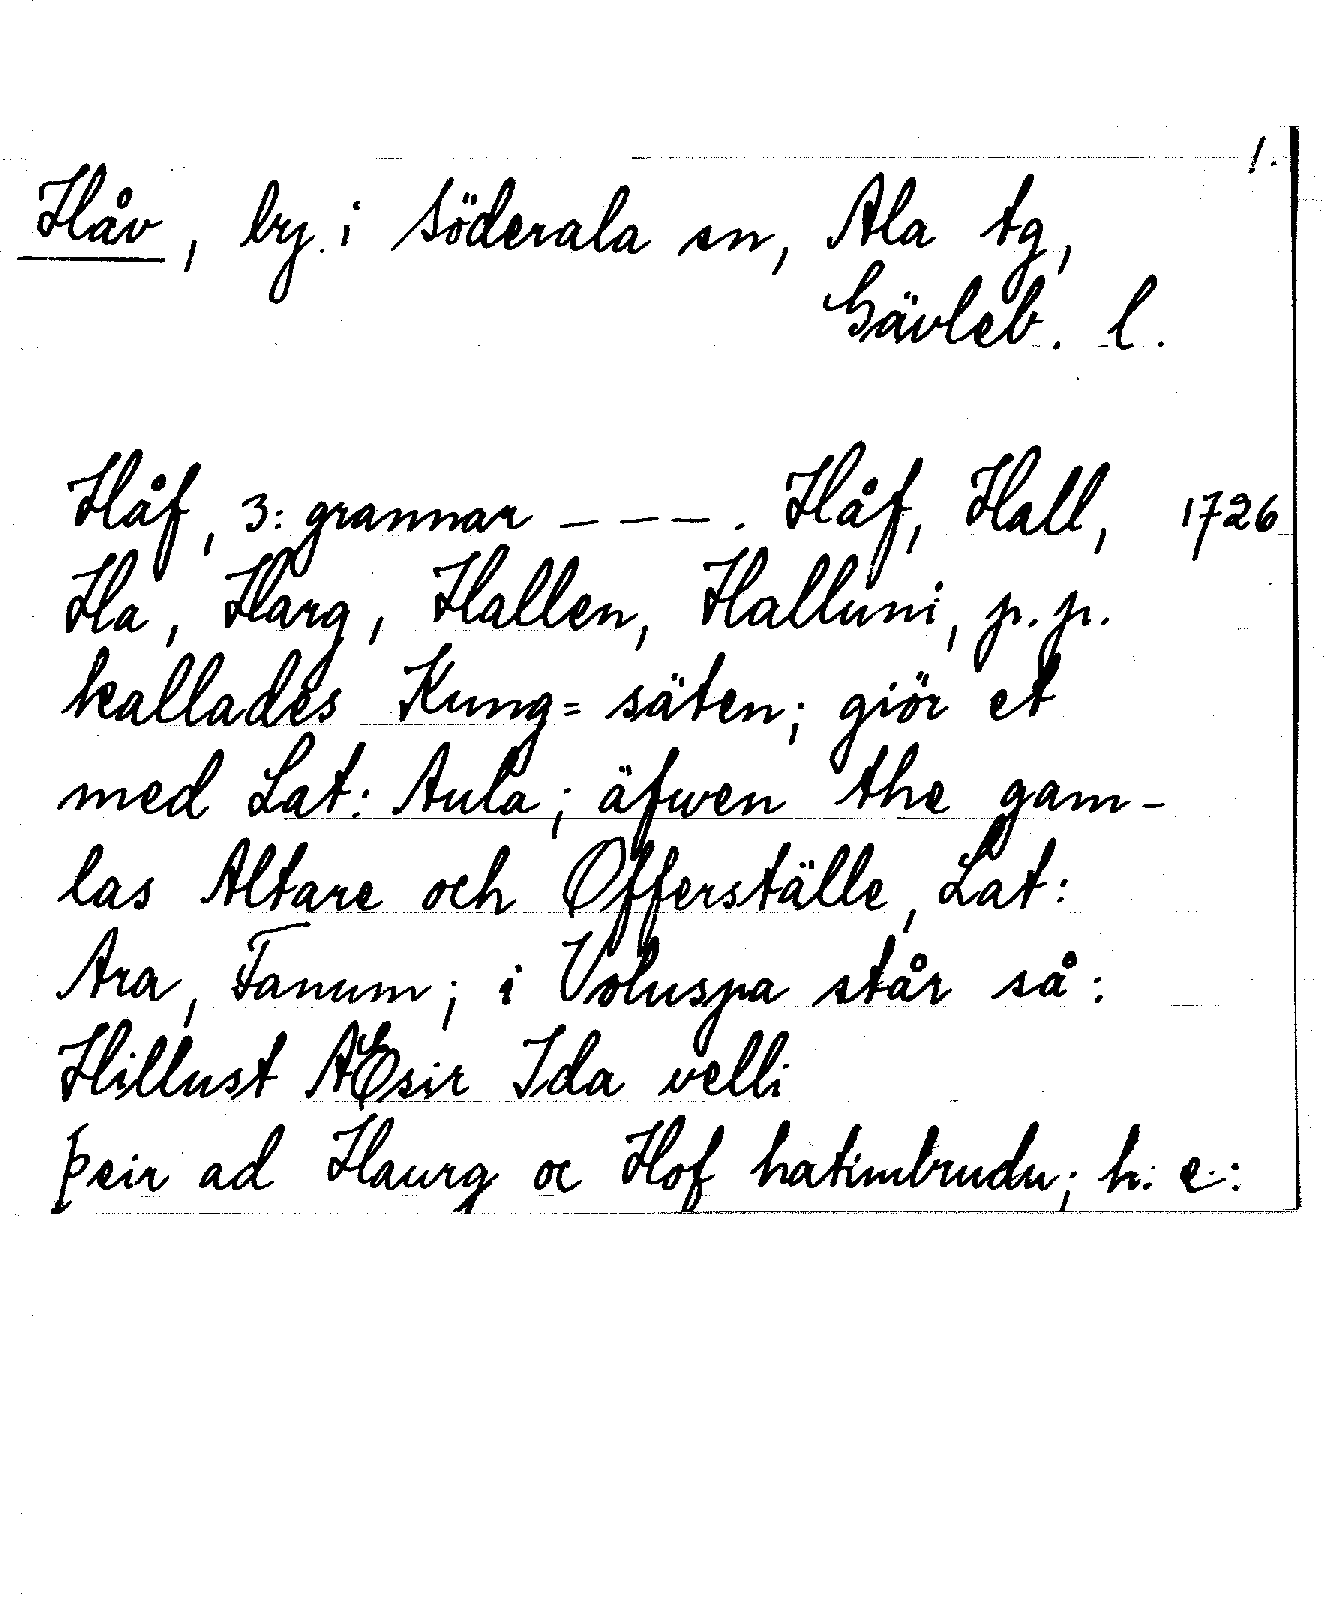 1.
Håv, by i Söderala sn, Ala tg,
Gävleb. l.
Håf, 3: grannar _ _ _ . Håf, Hall, 1726
Ha, Harg, Hallen, Halluni, p. p.
kallades Kung= säten; giör et
med Lat: Aula; äfwen the gam-
las Altare och Offerställe, Lat:
Ara, Fanum; i Voluspa står så:
Hillust AEsir Ida velli
þeir ad Haurg oc Hof hatimbrudu; h: e: